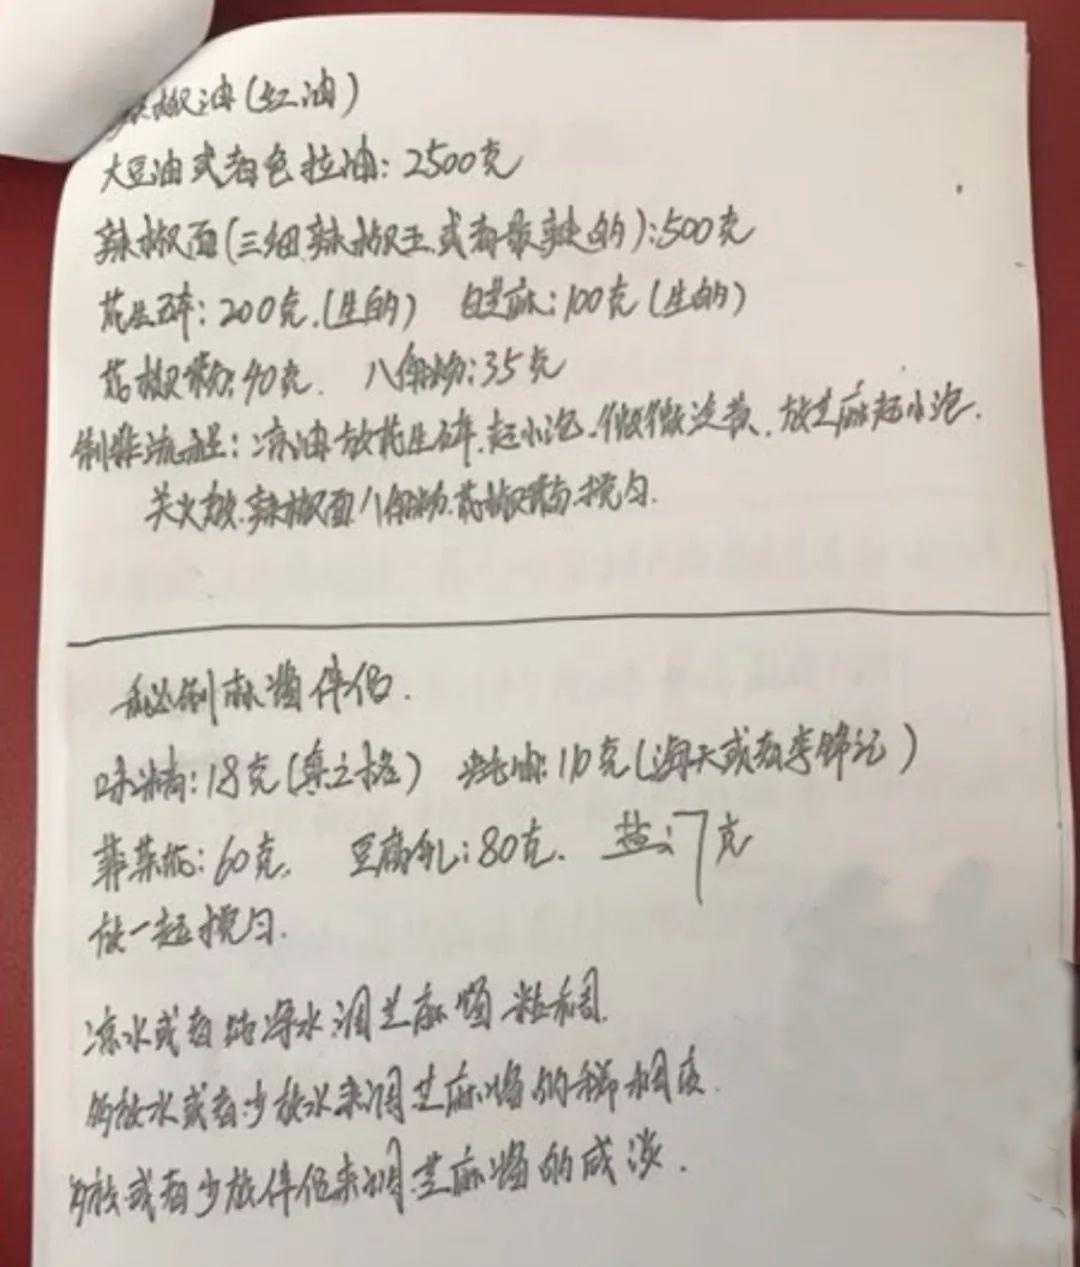 辣椒油(红油)
大豆油或者色拉油:2500克
辣椒面(三细辣椒王.或者最辣的):500克
花生碎:200克.(生的) 白芝麻:100克(生的)
花椒粉:40克. 八角粉:35克
制作流程:凉油放花生碎.起小泡.微微泛黄、放芝麻起小泡.
关火放.辣椒面八角粉.花椒粉.搅匀.
秘制麻酱伴侣.
味精:18克() 蚝油:110克(海天或者李锦记)
韭菜花:60克. 豆腐乳:80克. 盐:7克
放一起搅匀.
凉水或者纯净水调芝麻酱粘稠.
多放水或者少放水来调芝麻酱的稀稠度.
多放或者少放伴侣来调芝麻酱的咸淡.